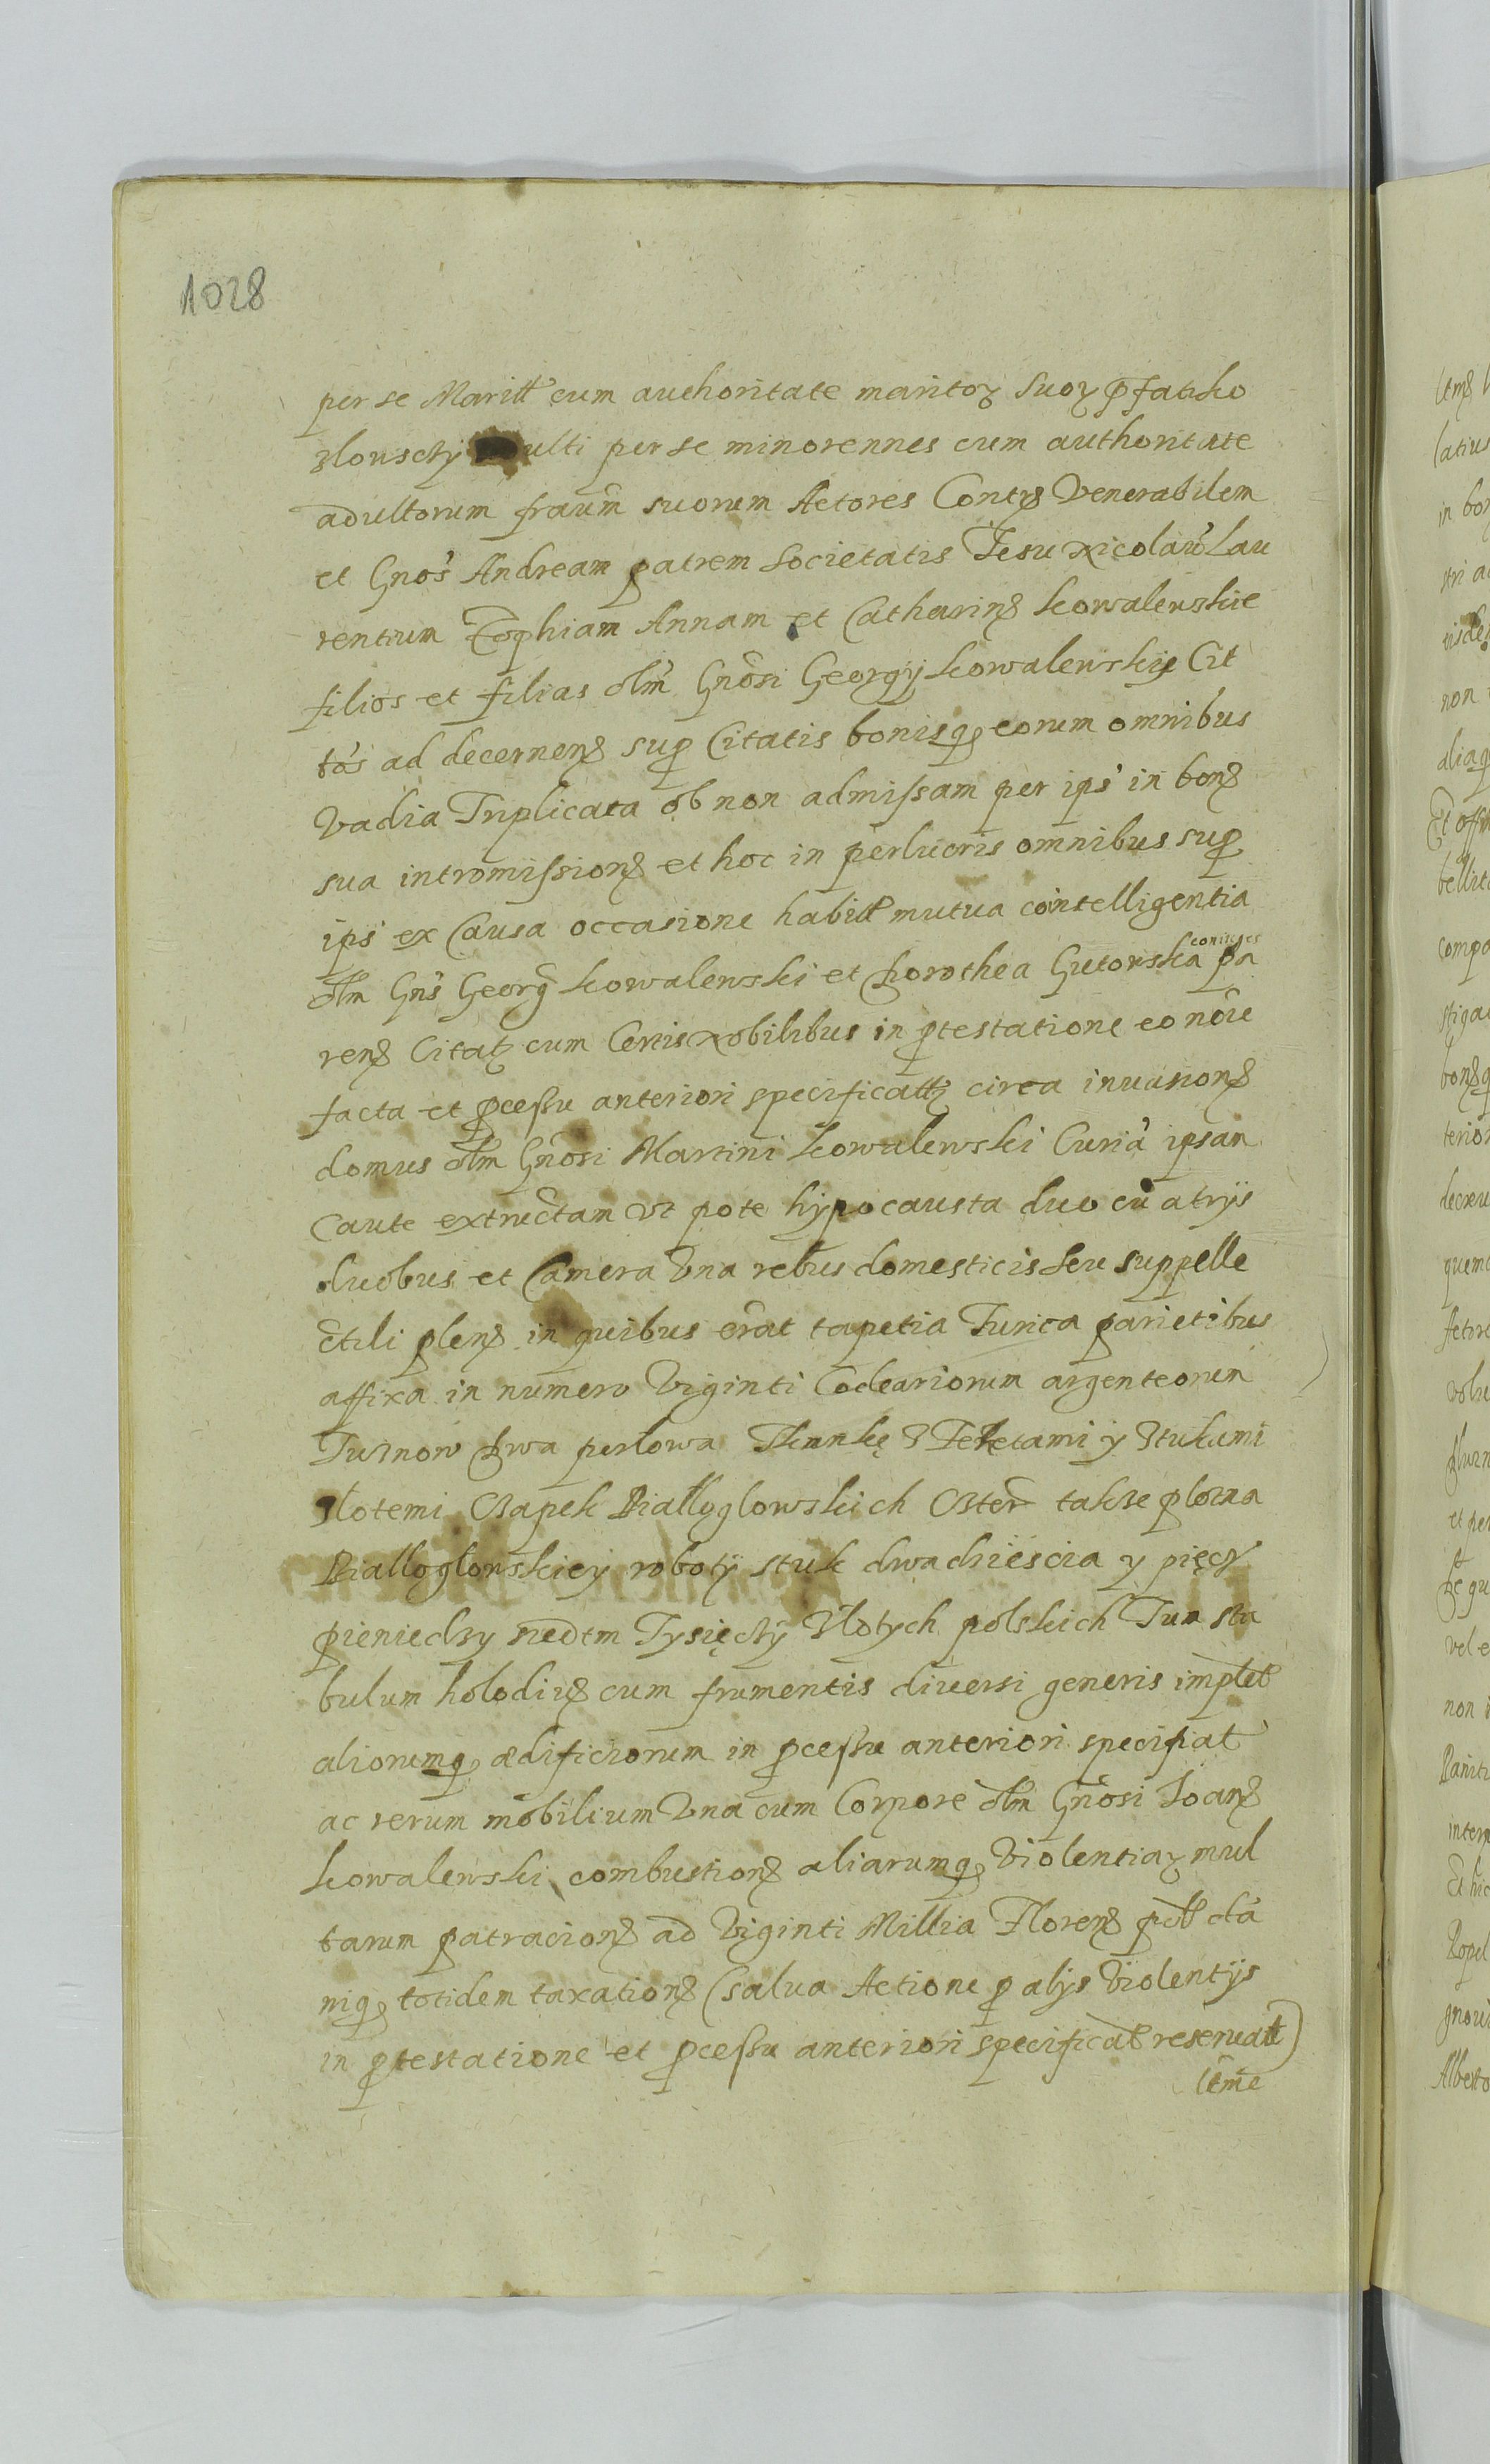 1028
per se Maritt cum authoritate maritoꝝ suoꝝ p̄fati ko
zlowscÿ ulti per se minorennes cum authoritate
adultorum fraũm suorum Actores Contrꝫ Venerabilem
et Gnos̃ Andream patrem Societatis Jesu Nicolaũ Lau
rentium Zophiam Annam et Catharinꝫ kowalewskie
filios et filias olm̃ Gnõsi Georgÿ kowalewskie Cit
tos̃ ad decernenꝫ sup̱ Citatis bonisqꝫ eorum omnibus
Vadia Triplicata ob non admiſsam per ips̃ in bonꝫ
sua intromiſsionꝫ et hoc in perlucris omnibus sup̱
ips̃ ex Causa occasione habitt mutua cointelligentia
olm̃ Gns̃ Georg̃ kowalewski et Dorothea Gutowska coniuges pa
renꝫ Citatꝫ cum Certis Nobilibus in p̱testatione eo nõie
facta et p̱ceſsu anteriori specificattꝫ circa inuasionꝫ
domus olm̃ Gnõsi Martini kowalewski Curiã ipsam
caute extructam Vt pote hypocausta duo cũ atrÿs
duobus et Camera Vna rebus domesticis seu suppelle
ctili plenꝫ in quibus erãt tapetia Turica parietibus
affixa in numero Viginti Cocleariorum argenteorum
Tuznow Dwa perlowa z Feretami y Stukami
zlotemi Czapek Bialloglowskich Czterẽ takze plotna
Bialloglowskiey robotÿ stuk dwadziescia y pięcz
pieniedzy siedem Tysięczÿ Zlotych polskich Tum sta
bulum holodiũꝫ cum frumentis diuersi generis implet
aliorumqꝫ ædificiorum in p̱ceſsu anteriori specificat
ac rerum mobilium Vna cum Corpore olm̃ Gnõsi Joanꝫ
kowalewski combustionꝫ aliarumqꝫ Violentiaꝝ mul
tarum patracionꝫ ad Viginti Millia Florenꝫ poll dã
niqꝫ totidem taxationꝫ (salua Actione p̱ alÿs Violentÿs
in p̱testatione et p̱ceſsu anteriori specificat reseruatt)
ltm̃e